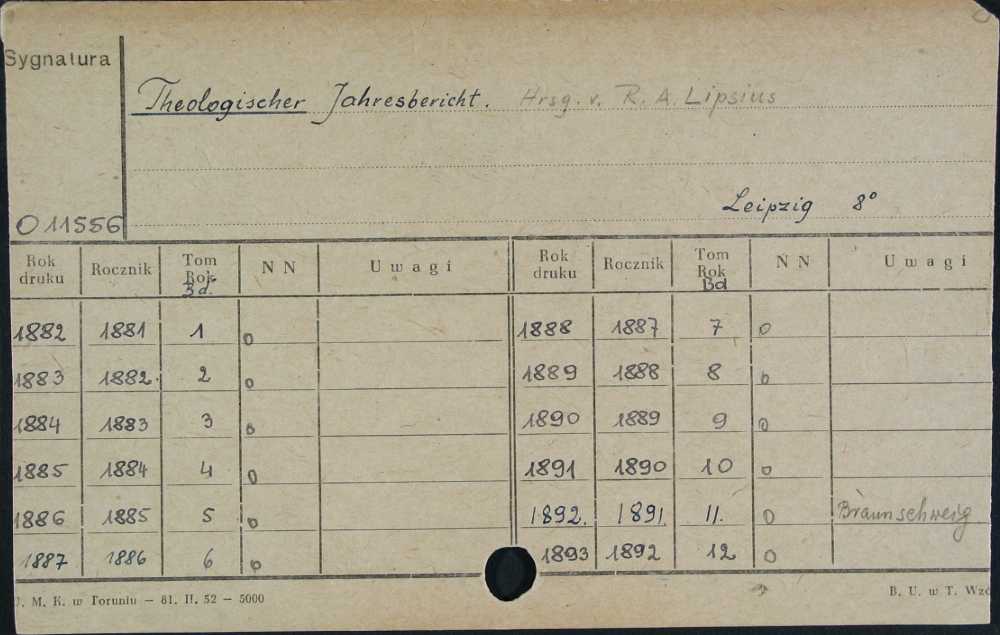 Sygnatura
Theologischer Jahresbericht. Hrsg. v. R. A. Lipsius
Leipzig 8°
O 11556
Rok druku Rocznik Tom Rok Bd. NN Uwagi Rok druku Rocznik Tom Rok Bd NN Uwagi
1882 1881 1 0 1888 1887 7 0
1883 1882. 2 0 1889 1888 8 0
1884 1883 3 0 1890 1889 9 0
1885 1884 4 0 1891 1890 10 0
1886 1885 5 0 1892. 1891. 11. 0 Braunschweig
1887 1886 6 0 1893 1892 12 0
U. M. K. w Toruniu — 81. II. 52 — 5000 B. U. w T.